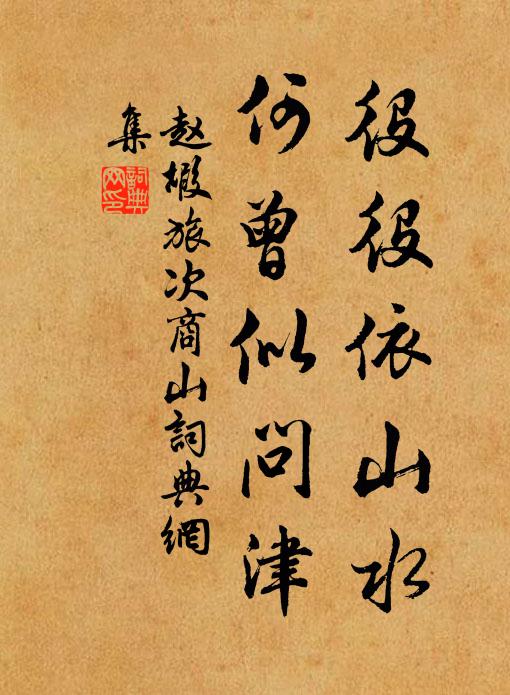 役役依山水
何曾似问津
赵嘏旅次商山詞典網
集
詞典
网印